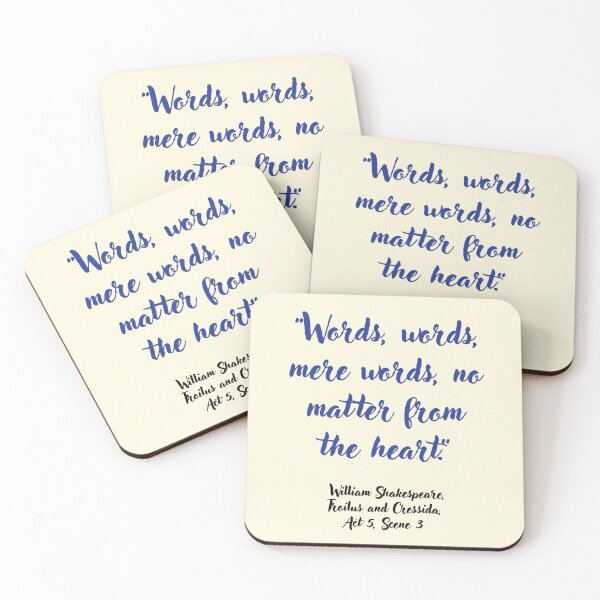 "Words, words,
mere words, no
matter from
"Words, words,
mere words, no
matter from
the heart."
"Words, words,
mere words, no
matter from
the heart."
William
Troilus and
Act 5,
"Words, words,
mere words, no
matter from
the heart."
William Shakespeare,
Troilus and Cressida,
Act 5, Scene 3